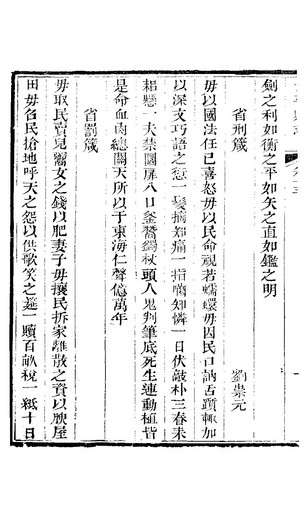 劍之利如衡之平如矢之直如鑑之明
省刑箴
劉崇元
毋以國法任已喜怒毋以民命視若蠕蠉毋因民口訥舌躓輙加
以深文巧語之愆一髮摘知痛一指嚙知憐一日伏敲朴三春未
耜懸一夫禁圜扉八日釜鬵蠲杖頭人鬼判筆底死生連動植皆
是命血肉總關天所以于東海仁聲億萬年
省罰箴
毋取民賣兒鬻女之錢以肥妻子毋攘民拆家離散之資以腴屋
田毋名民搶地呼天之怨以供歌笑之筵一贖百畝稅一紙十日